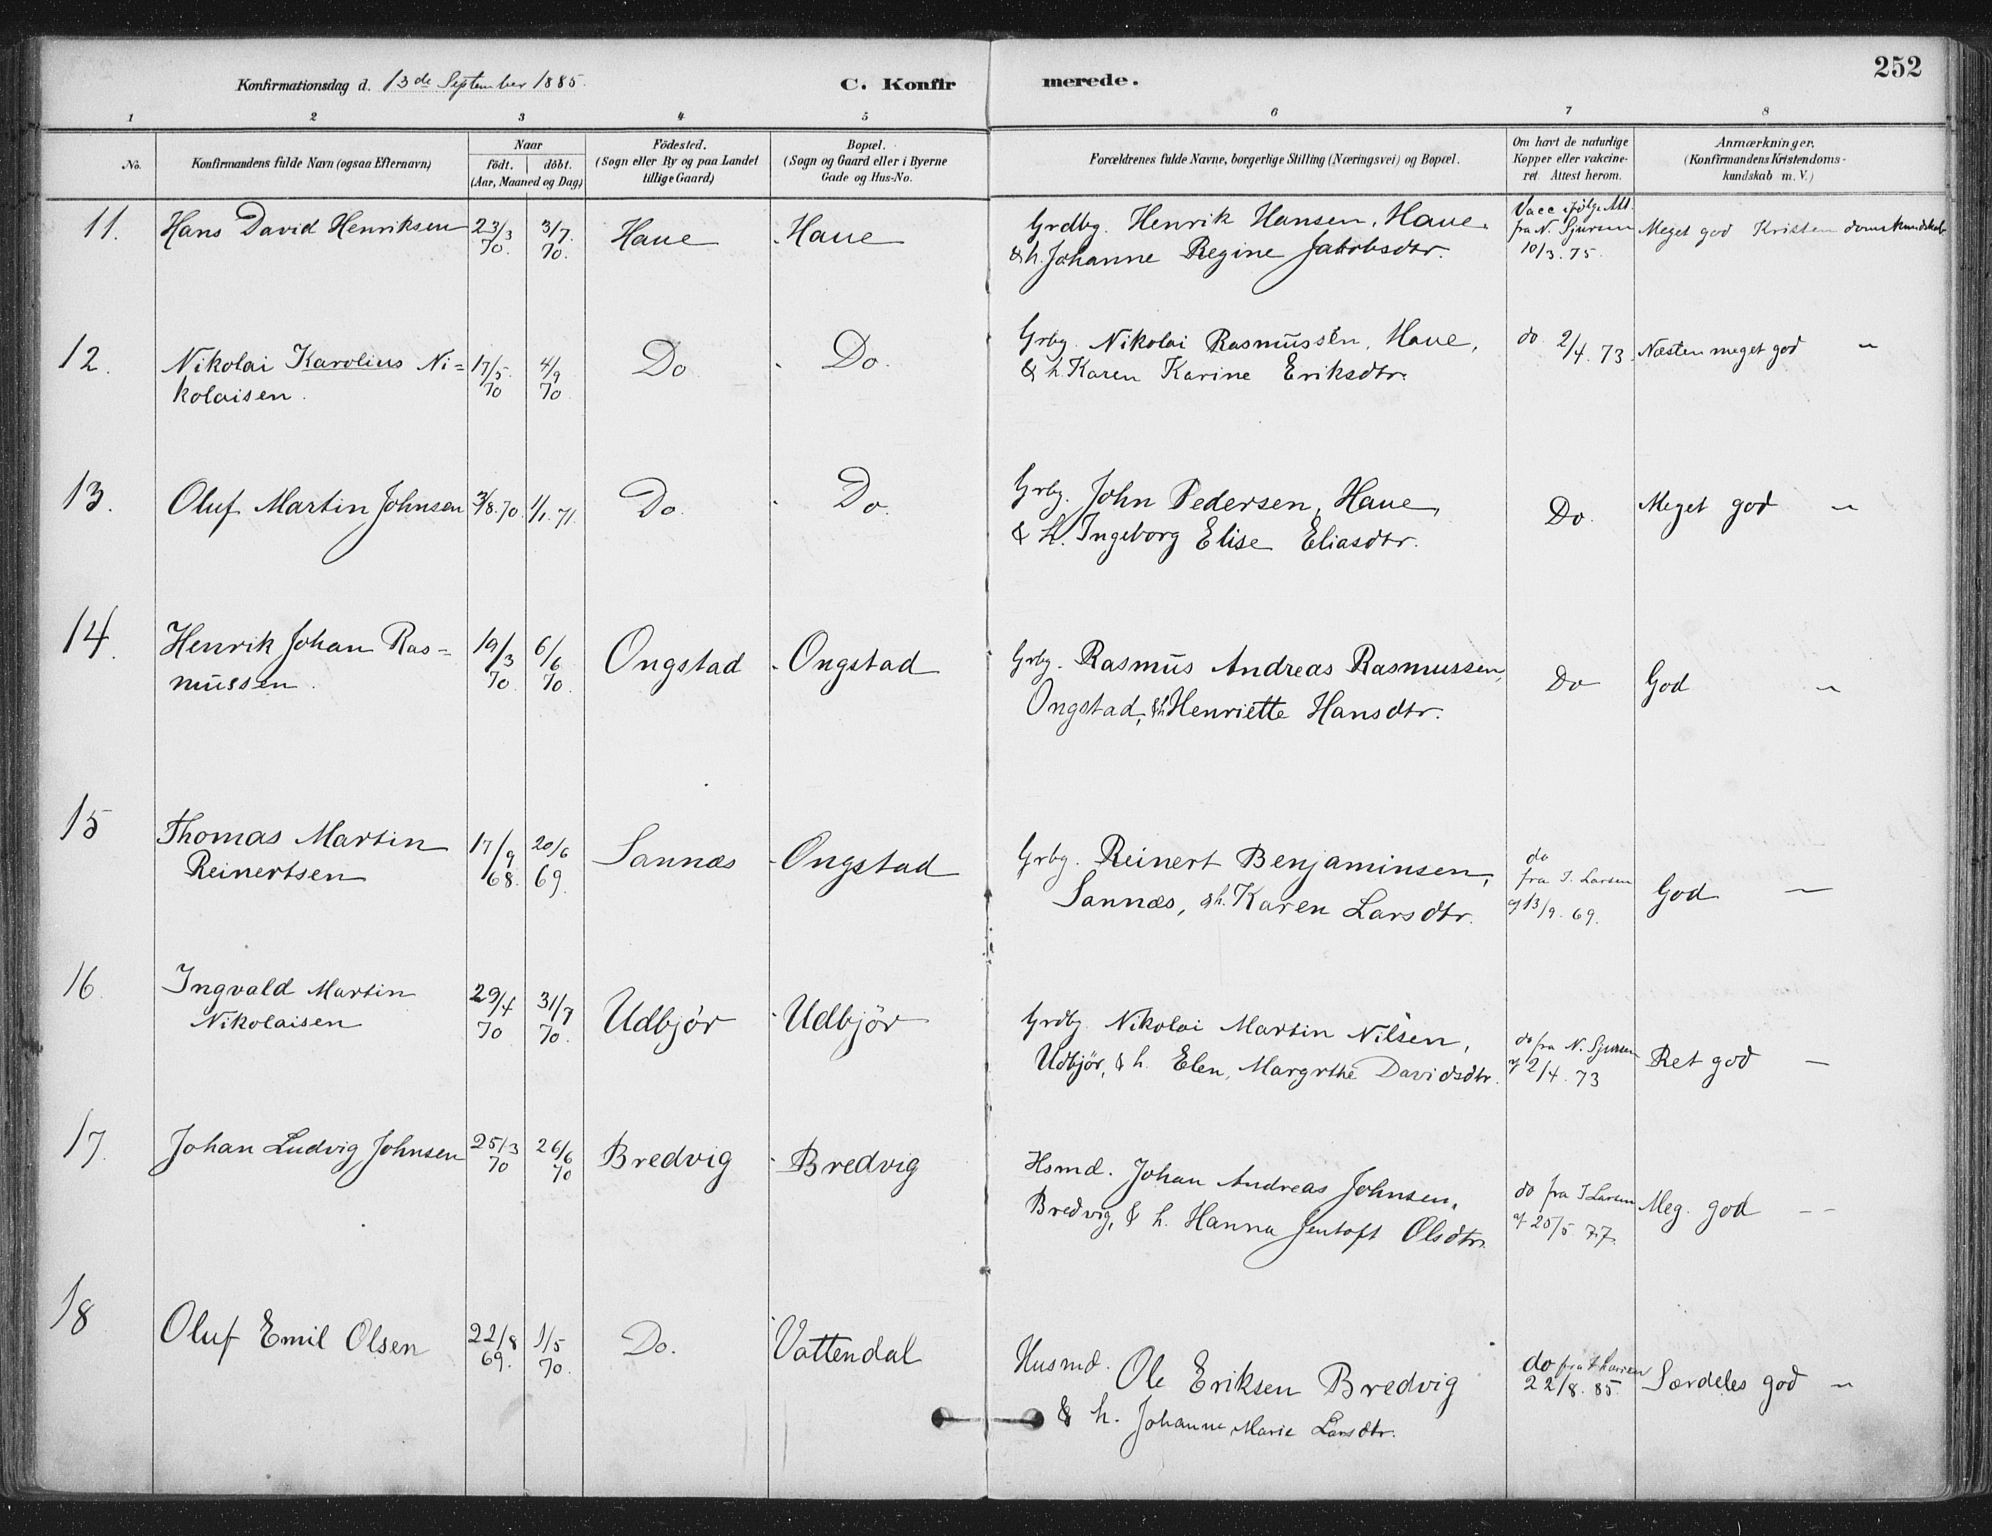 252
Konfirmationsdag d. 13de September 1885.
C. Konfirmerede.
1 2 3 4 5 6 7 8
No.
Konfirmandens fulde Navn (ogsaa Efternavn)
Naar
födt. döbt.
(Aar, Maaned og Dag)
Födested.
(Sogn eller By og paa Landet
tillige Gaard)
Bopæl.
(Sogn og Gaard eller i Byerne
Gade og Hus-No.
Forældrenes fulde Navne, borgerlige Stilling (Næringsvei) og Bopæl.
Om havt de naturlige
Kopper eller vakcine-
ret. Attest herom.
Anmærkninger.
(Konfirmandens Kristendoms-
kundskab m. V.)
11. Hans David Henriksen 23/3 70. 3/7. 70. Haue Haue
Grdbg. Henrik Hansen, Haue,
& h. Johanne Regine Jakobsdtr.
Vacc ifölge Att.
fra N. Sjursen
10/3. 75.
Meget god Kristendomskundskab
12. Nikolai Karolius Ni=
kolaisen.
17/5. 70 4/9 70. Do Do.
Grbg. Nikolai Rasmussen, Haue,
& h. Karen Karine Eriksdtr.
do 2/4. 73.
Næsten meget god "
13. Oluf Martin Johnsen 3/8. 70. 1/1. 71. Do. Do.
Grbg. John Pedersen, Haue,
& h. Ingeborg Elise Eliasdtr.
Do.
Meget god "
14. Henrik Johan Ras=
mussen.
19/3 70. 6/6 70. Ongstad Ongstad
Grbg. Rasmus Andreas Rasmussen,
Ongstad, & h. Henriette Hansdtr.
Do
God "
15 Thomas Martin
Reinertsen
17/9 68. 20/6 69. Sannæs Ongstad
Grbg. Reinert Benjaminsen,
Sannæs, & h. Karen Larsdtr.
do
fra I. Larsen
af 13/9. 69.
God "
16. Ingvald Martin
Nikolaisen
29/4 70 31/7 70. Udbjör Udbjör
Grdbg. Nikolai Martin Nilsen,
Udbjör, & h. Elen Margrthe Davidsdtr.
do fra N. Sjursen
af 2/4. 73
Ret god "
17. Johan Ludvig Johnsen 25/3 70 26/6 70 Bredvig Bredvig
Hsmd. Johan Andreas Johnsen,
Bredvig, & h. Hanna Jentoft Olsdtr.
do fra I Larsen
af 25/5 77.
Meg. god "
18 Oluf Emil Olsen 22/8 69. 1/5 70. Do. Vattendal
Husmd. Ole Eriksen Bredvig
& h. Johanne Marie Larsdtr.
do fra I Larsen
22/8. 85.
Særdeles god "